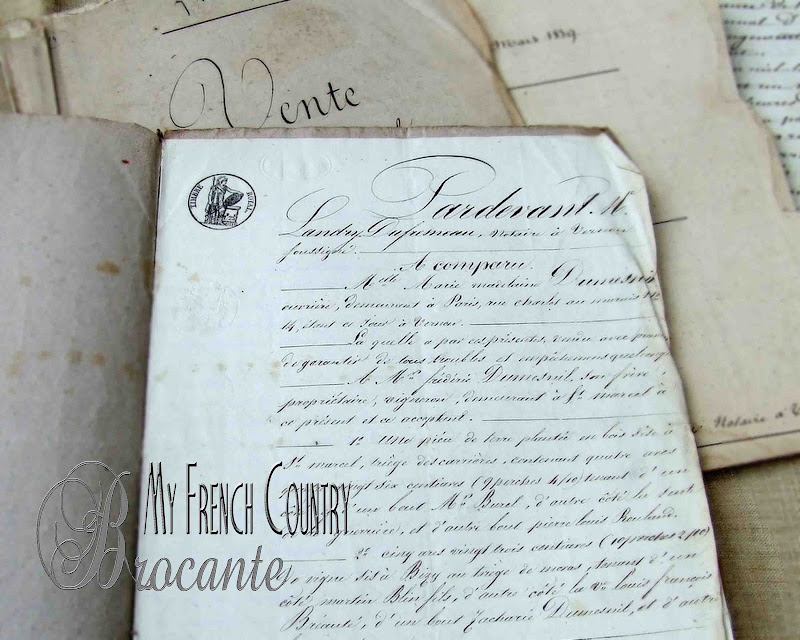 Vente
Mars 1839.
TIMBRE ROYAL
Pardevant Me.
Landry Dufumeau, Notaire à Vernon
soussigné.
A comparu.
Melle Marie madelaine Dumesnil
ouvrière, demeurant à Paris, rue charlot au marais No
14, étant ce jour à Vernon.
La quelle a par ces présentes, vendu avec
de garantie de tous troubles et empêchemens quelconq
A Mr. frédéric Dumesnil, son frère,
propriétaire, vigneron, demeurant à St. marcel à
ce présent et ce acceptent.
1o. Une pièce de terre plantée en bois sise à
St. marcel, triège des carrières, contenant quatre ares
vingt six centiares (9 perches 4 po) tenant d'un
d'un bout Mr. Burel, d'autre côté la sente
guerrière, et d'autre bout pierre louis Rouland.
2o. cinq ares vingt trois centiares
de vigne sis à Bizy au triège de tenant d'un
côté martin Blin fils, d'autre côté la Ve. louis françois
Bréauté, d'un bout Zacharie Dumesnil, et d'autre
Notaire à V
My French Country
Brocante